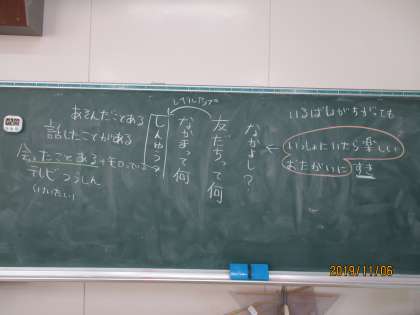 いるばしょがちがっても
いっしょにいたら楽しい
おたがいにすき
なかよし？
友だちって何
レベルアップ
なかまって何
しんゆう？
あそんだことある
話したことがある
会ったことある
テレビつうしん
(けいたい)
2019/11/06